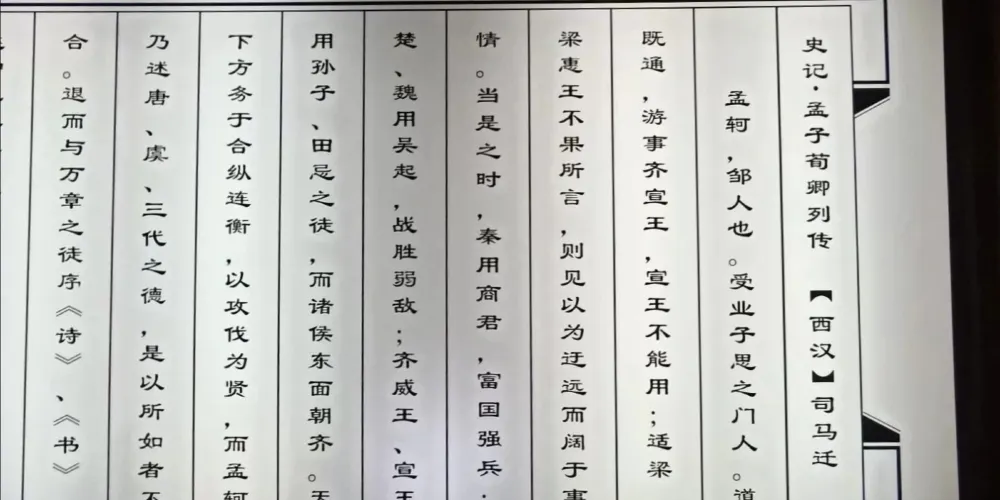 史记·孟子荀卿列传 【西汉】司马迁
孟轲，邹人也。受业子思之门人。道
既通，游事齐宣王，宣王不能用；适梁
梁惠王不果所言，则见以为迂远而阔于事
情。当是之时，秦用商君，富国强兵；
楚、魏用吴起，战胜弱敌；齐威王、宣王
用孙子、田忌之徒，而诸侯东面朝齐。天
下方务于合纵连衡，以攻伐为贤，而孟轲
乃述唐、虞、三代之德，是以所如者不
合。退而与万章之徒序《诗》、《书》